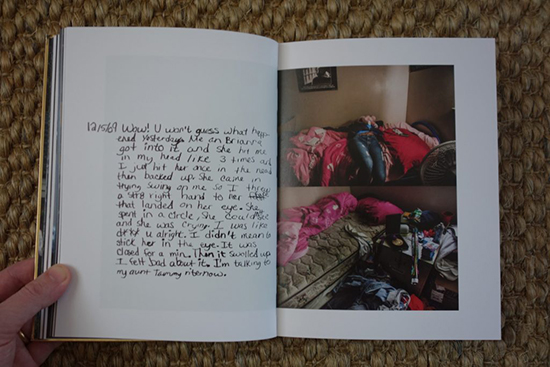 12/5/09 Wow! U won't guess what happ-
ened yesterday. Me an Brianna
got into it and she hit me
in my head like 3 times and
I just hit her once in the head
then backed up. She came in
trying swing on me so I thing
a str8 right hand to her
that landed on her eye. She
spent in a circle, she couldnt see
and she was crying. I was like
u alright. I didn't mean to
stick her in the eye. It was
closed for a min. Then it swelled up
I felt bad about it. I'm talking to
my aunt Tammy rite now.